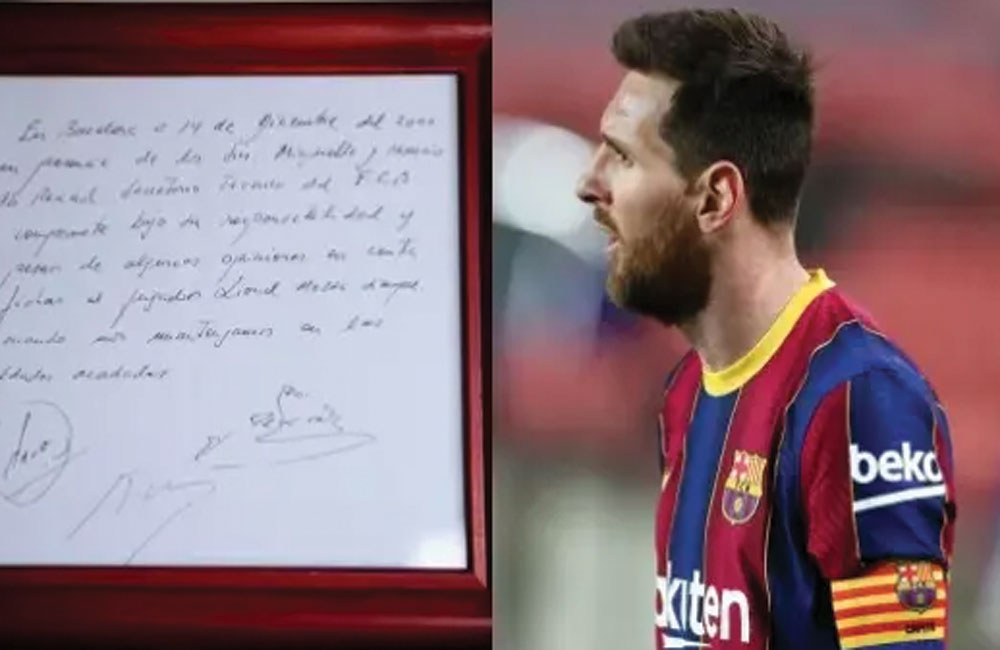 En Barcelona a 14 de Diciembre del 2000
en presencia de los Srs. Minguella y Horacio
Rexach Secretario Técnico del F.C.B
compromete bajo su responsabilidad y
pesar de algunas opiniones en contra
fichar al jugador Lionel Messi siempre
cuando nos mantengamos en las
acordadas
beko
akuten